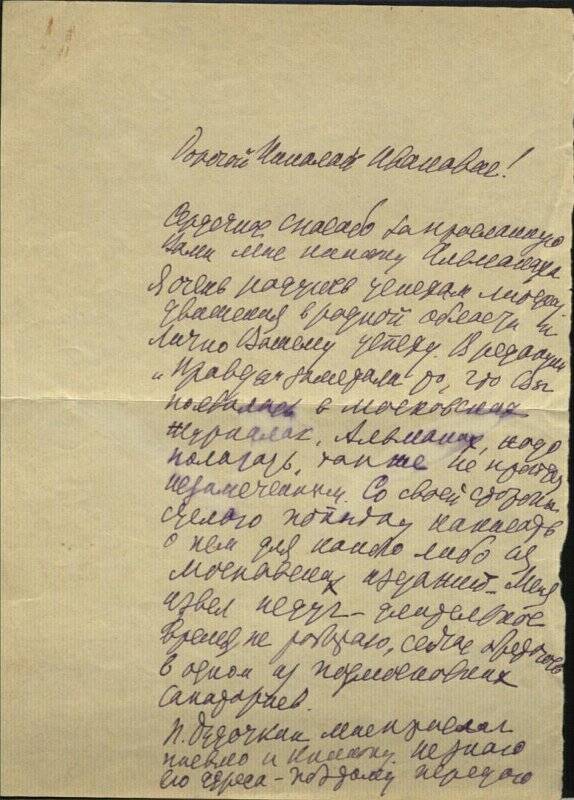 Дорогой Николай Иванович!
Сердечное спасибо за присланную
Вами мне книжку Альманаха
Я очень радуюсь успехам литер.
движения в родной области и
лично Вашему успеху. В редакции
„Правды" заметили то, что Вы
появились в московских
журналах, Альманах, надо
полагать, также не пройдет
незамеченным. Со своей стороны
сделаю попытку написать
о нем для какого либо из
московских изданий. Меня
извел недуг - длительное
время не работаю, сейчас
в одном из подмосковных
санаториев.
П. Дудочкин мне прислал
письмо и книжку. Не знаю
его адреса - поэтому передаю